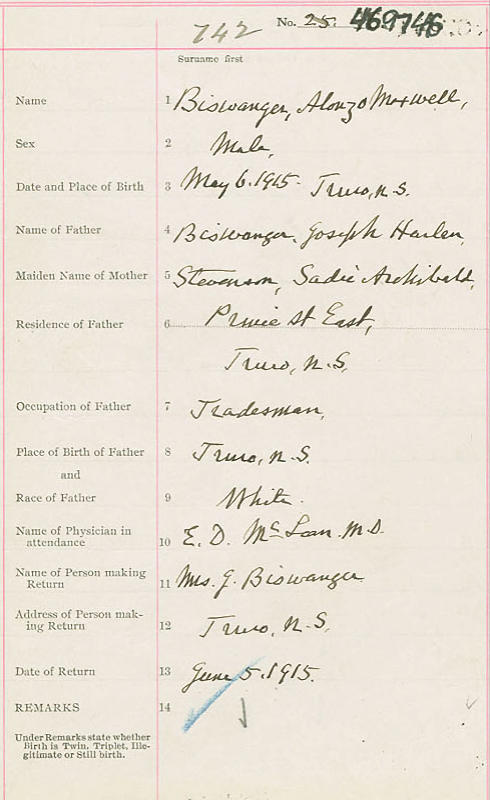 742 No. 25. 469746
Surname first
Name 1 Biswanger, Alonzo Maxwell,
Sex 2 Male,
Date and Place of Birth 3 May 6. 1915. Truro, N.S.
Name of Father 4 Biswanger, Joseph Harlen,
Maiden Name of Mother 5 Stevenson, Sadie Archibald,
Residence of Father 6 Prince St East,
Truro, N.S.
Occupation of Father 7 Tradesman,
Place of Birth of Father 8 Truro, N.S.
and
Race of Father 9 White.
Name of Physician in
attendance 10 E. D. McLean. M.D.
Name of Person making
Return 11 Mrs. J. Biswanger
Address of Person mak-
ing Return 12 Truro, N.S.
Date of Return 13 June 5. 1915.
REMARKS 14
Under Remarks state whether
Birth is Twin, Triplet, Ille-
gitimate or Still birth.